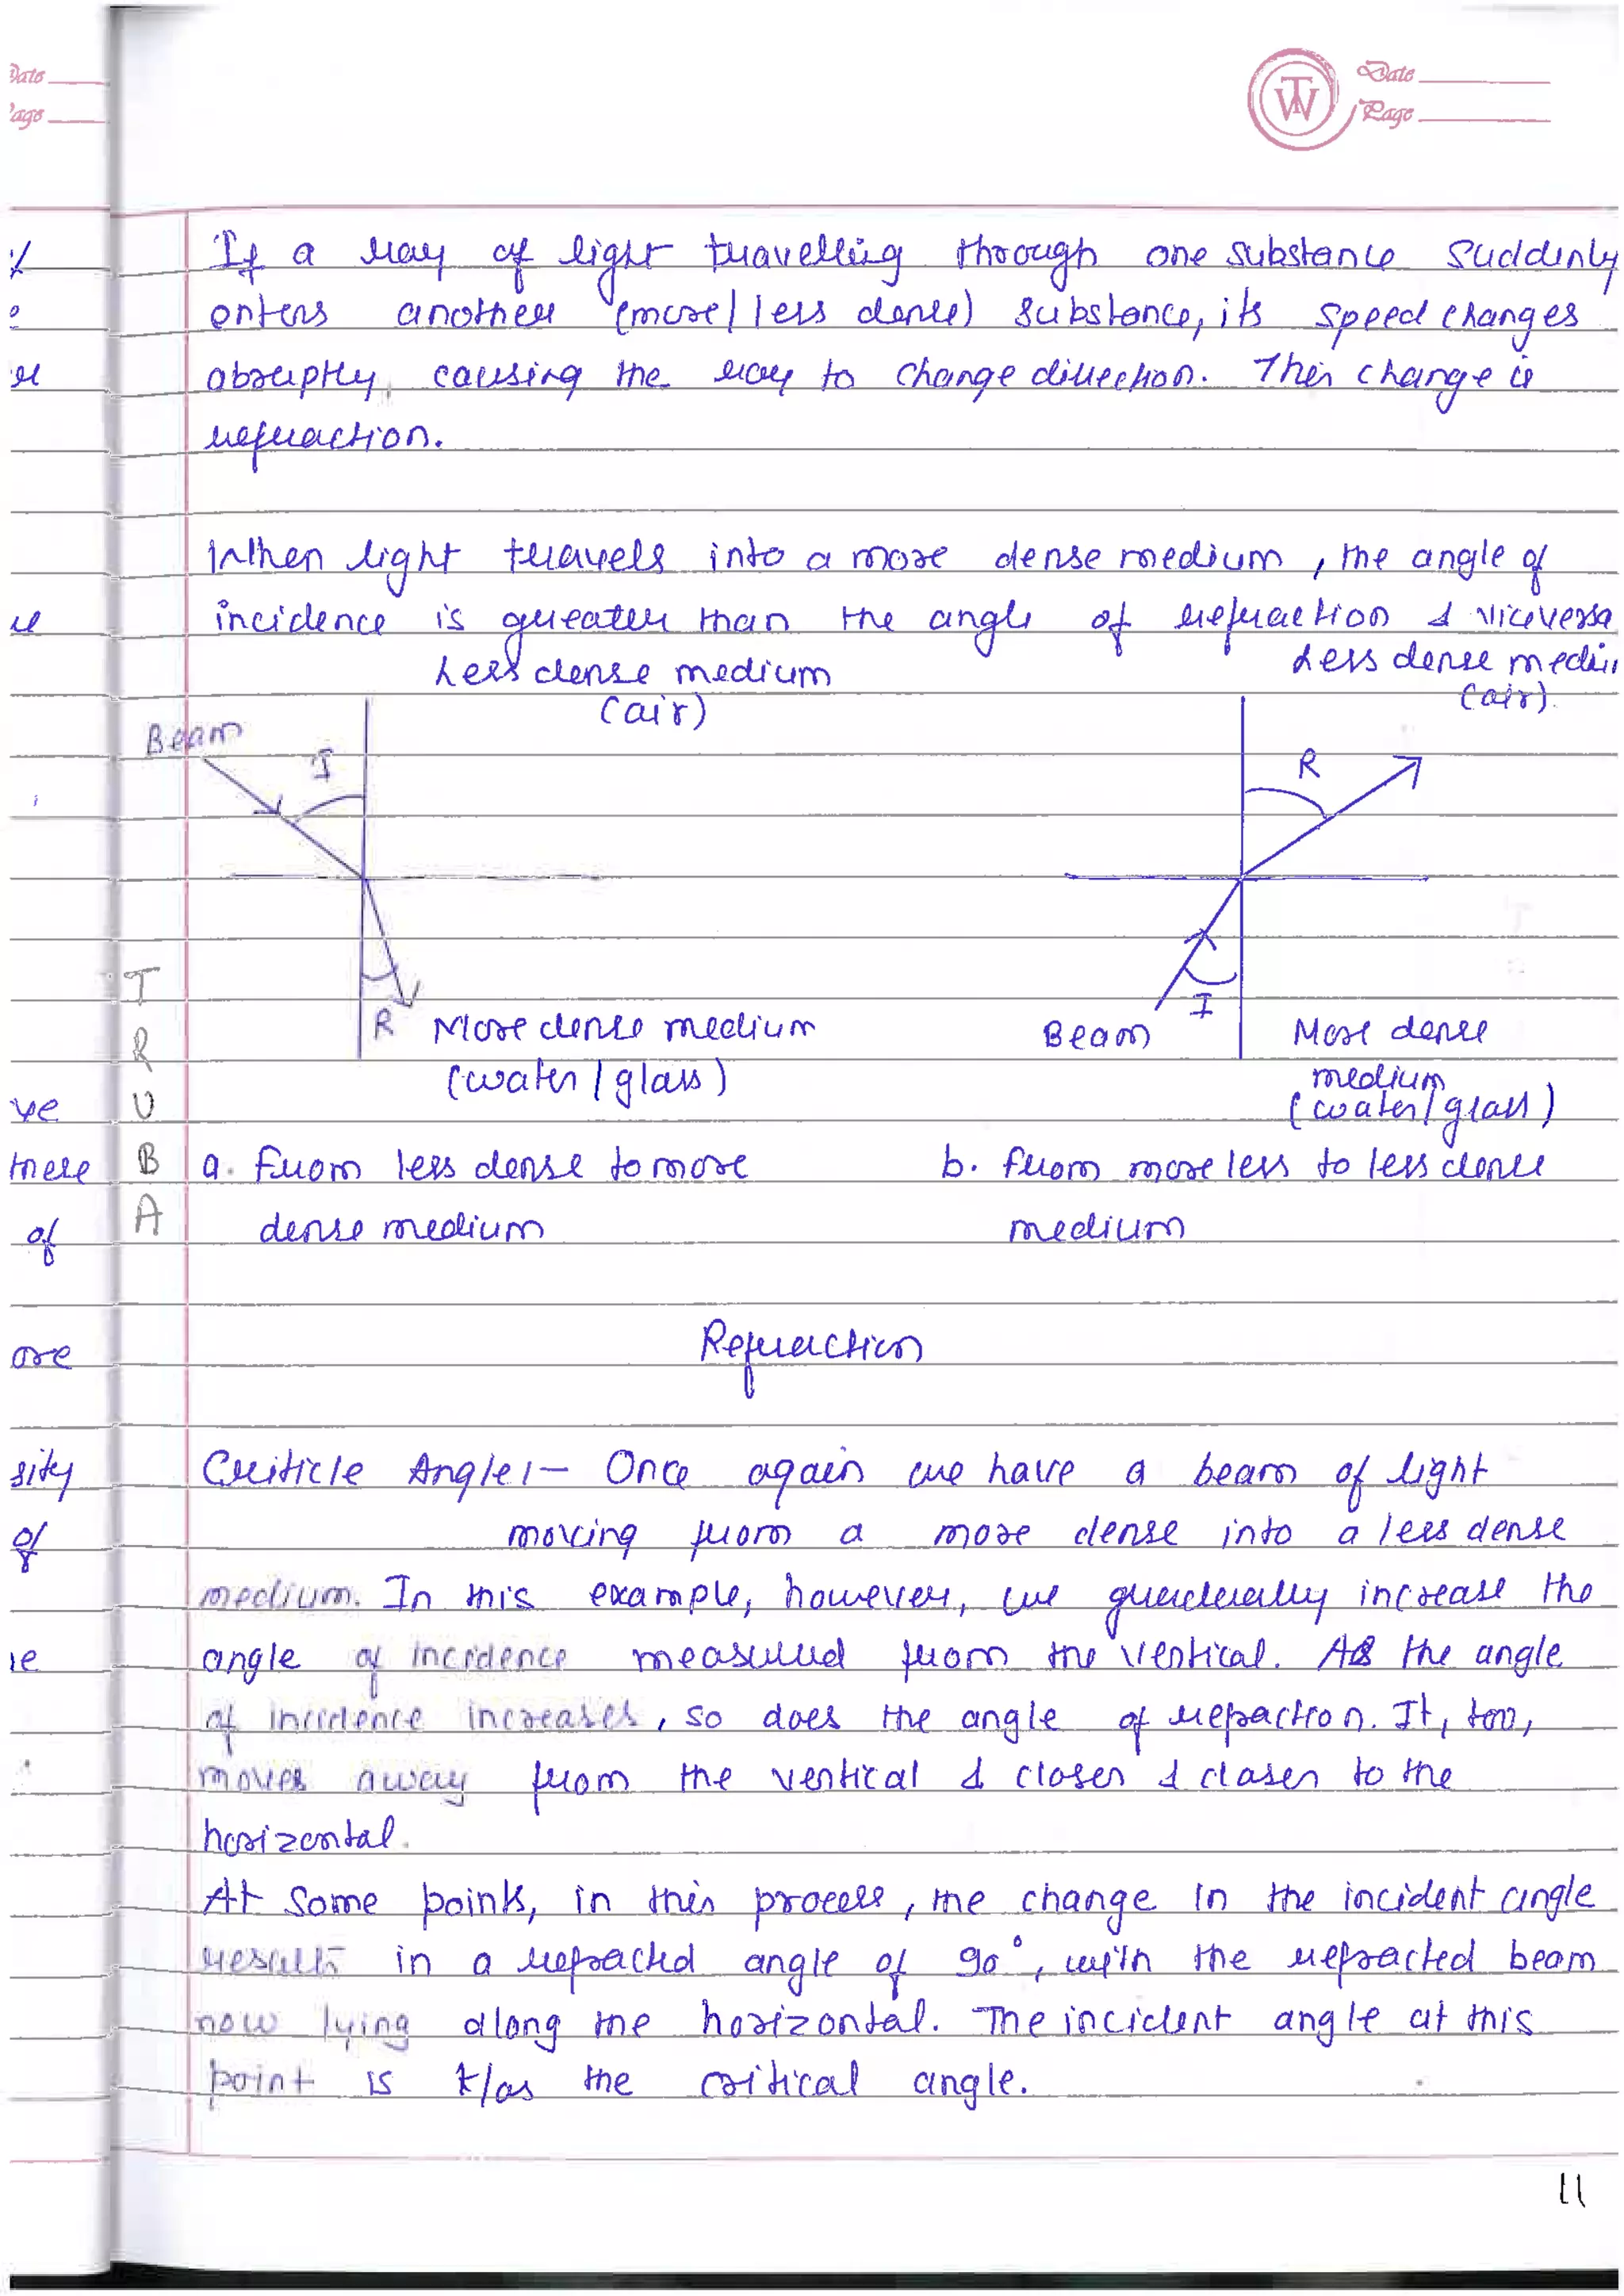 Date
Page
TW
Date
Page
If a ray of light travelling through one substance suddenly
enters another (more/less dense) substance, its speed changes
abruptly, causing the ray to change direction. This change is
refraction.
When light travels into a more dense medium, the angle of
incidence is greater than the angle of refraction & viceversa
Less dense medium
(air)
Less dense mediu
(air).
Beam
I
R
R
More dense medium
(water/glass)
Beam
I
More dense
medium
(water/glass)
T
R
U
B
A
a. From less dense to more
dense medium
b. From more less to less dense
medium
Refraction
Criticle Angle:- Once again we have a beam of light
moving from a more dense into a less dense
medium. In this example, however, we graduually increase the
angle of incidence measured from the vertical. As the angle
of incidence increases, so does the angle of refraction. It, too,
moves away from the vertical & closer & closer to the
horizontal.
At some points, in this process, the change in the incident angle
results in a refracted angle of 90°, with the refracted beam
now lying along the horizontal. The incident angle at this
point is k/as the critical angle.
ve
there
of
ore
sity
of
11